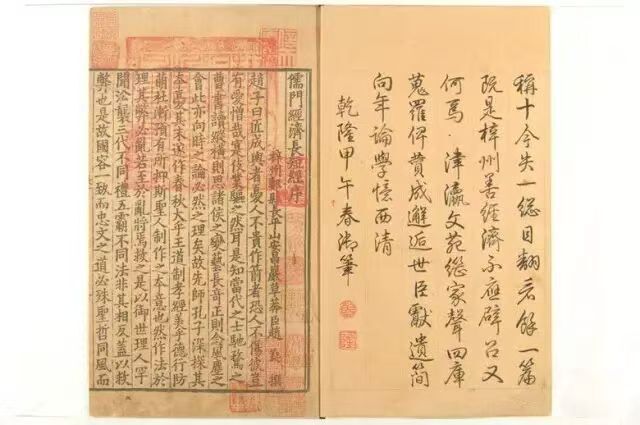 稱十今失一總目翻餘一篇
阮是梓州善經濟不應辟召又
何焉津瀛文苑繼家聲四庫
蒐羅俾貢成邂逅世臣獻遺簡
向年論學憶西清
乾隆甲午春御筆
儒門經濟長短經序
梓州郪縣長平山安昌巖草莽臣趙蕤撰
趙子曰匠成輿者憂人不貴作箭者恐人不傷彼豈
有愛憎哉寔伎業驅之然耳是知當代之士馳騖之
曹書讀縱橫則思諸侯之變藝長奇正則念風塵之
會此亦向時之論必然之理矣故先師孔子深探其
本憂其末遂作春秋大乎王道制孝經美乎德行防
萌杜漸預有所抑斯聖人制作之本意也然作法於
理其弊必亂若至於亂將焉救之是以御世理人罕
聞沿襲三代不同禮五霸不同法非其相反蓋以救
弊也是故國容一致而忠文之道必殊聖哲同風而